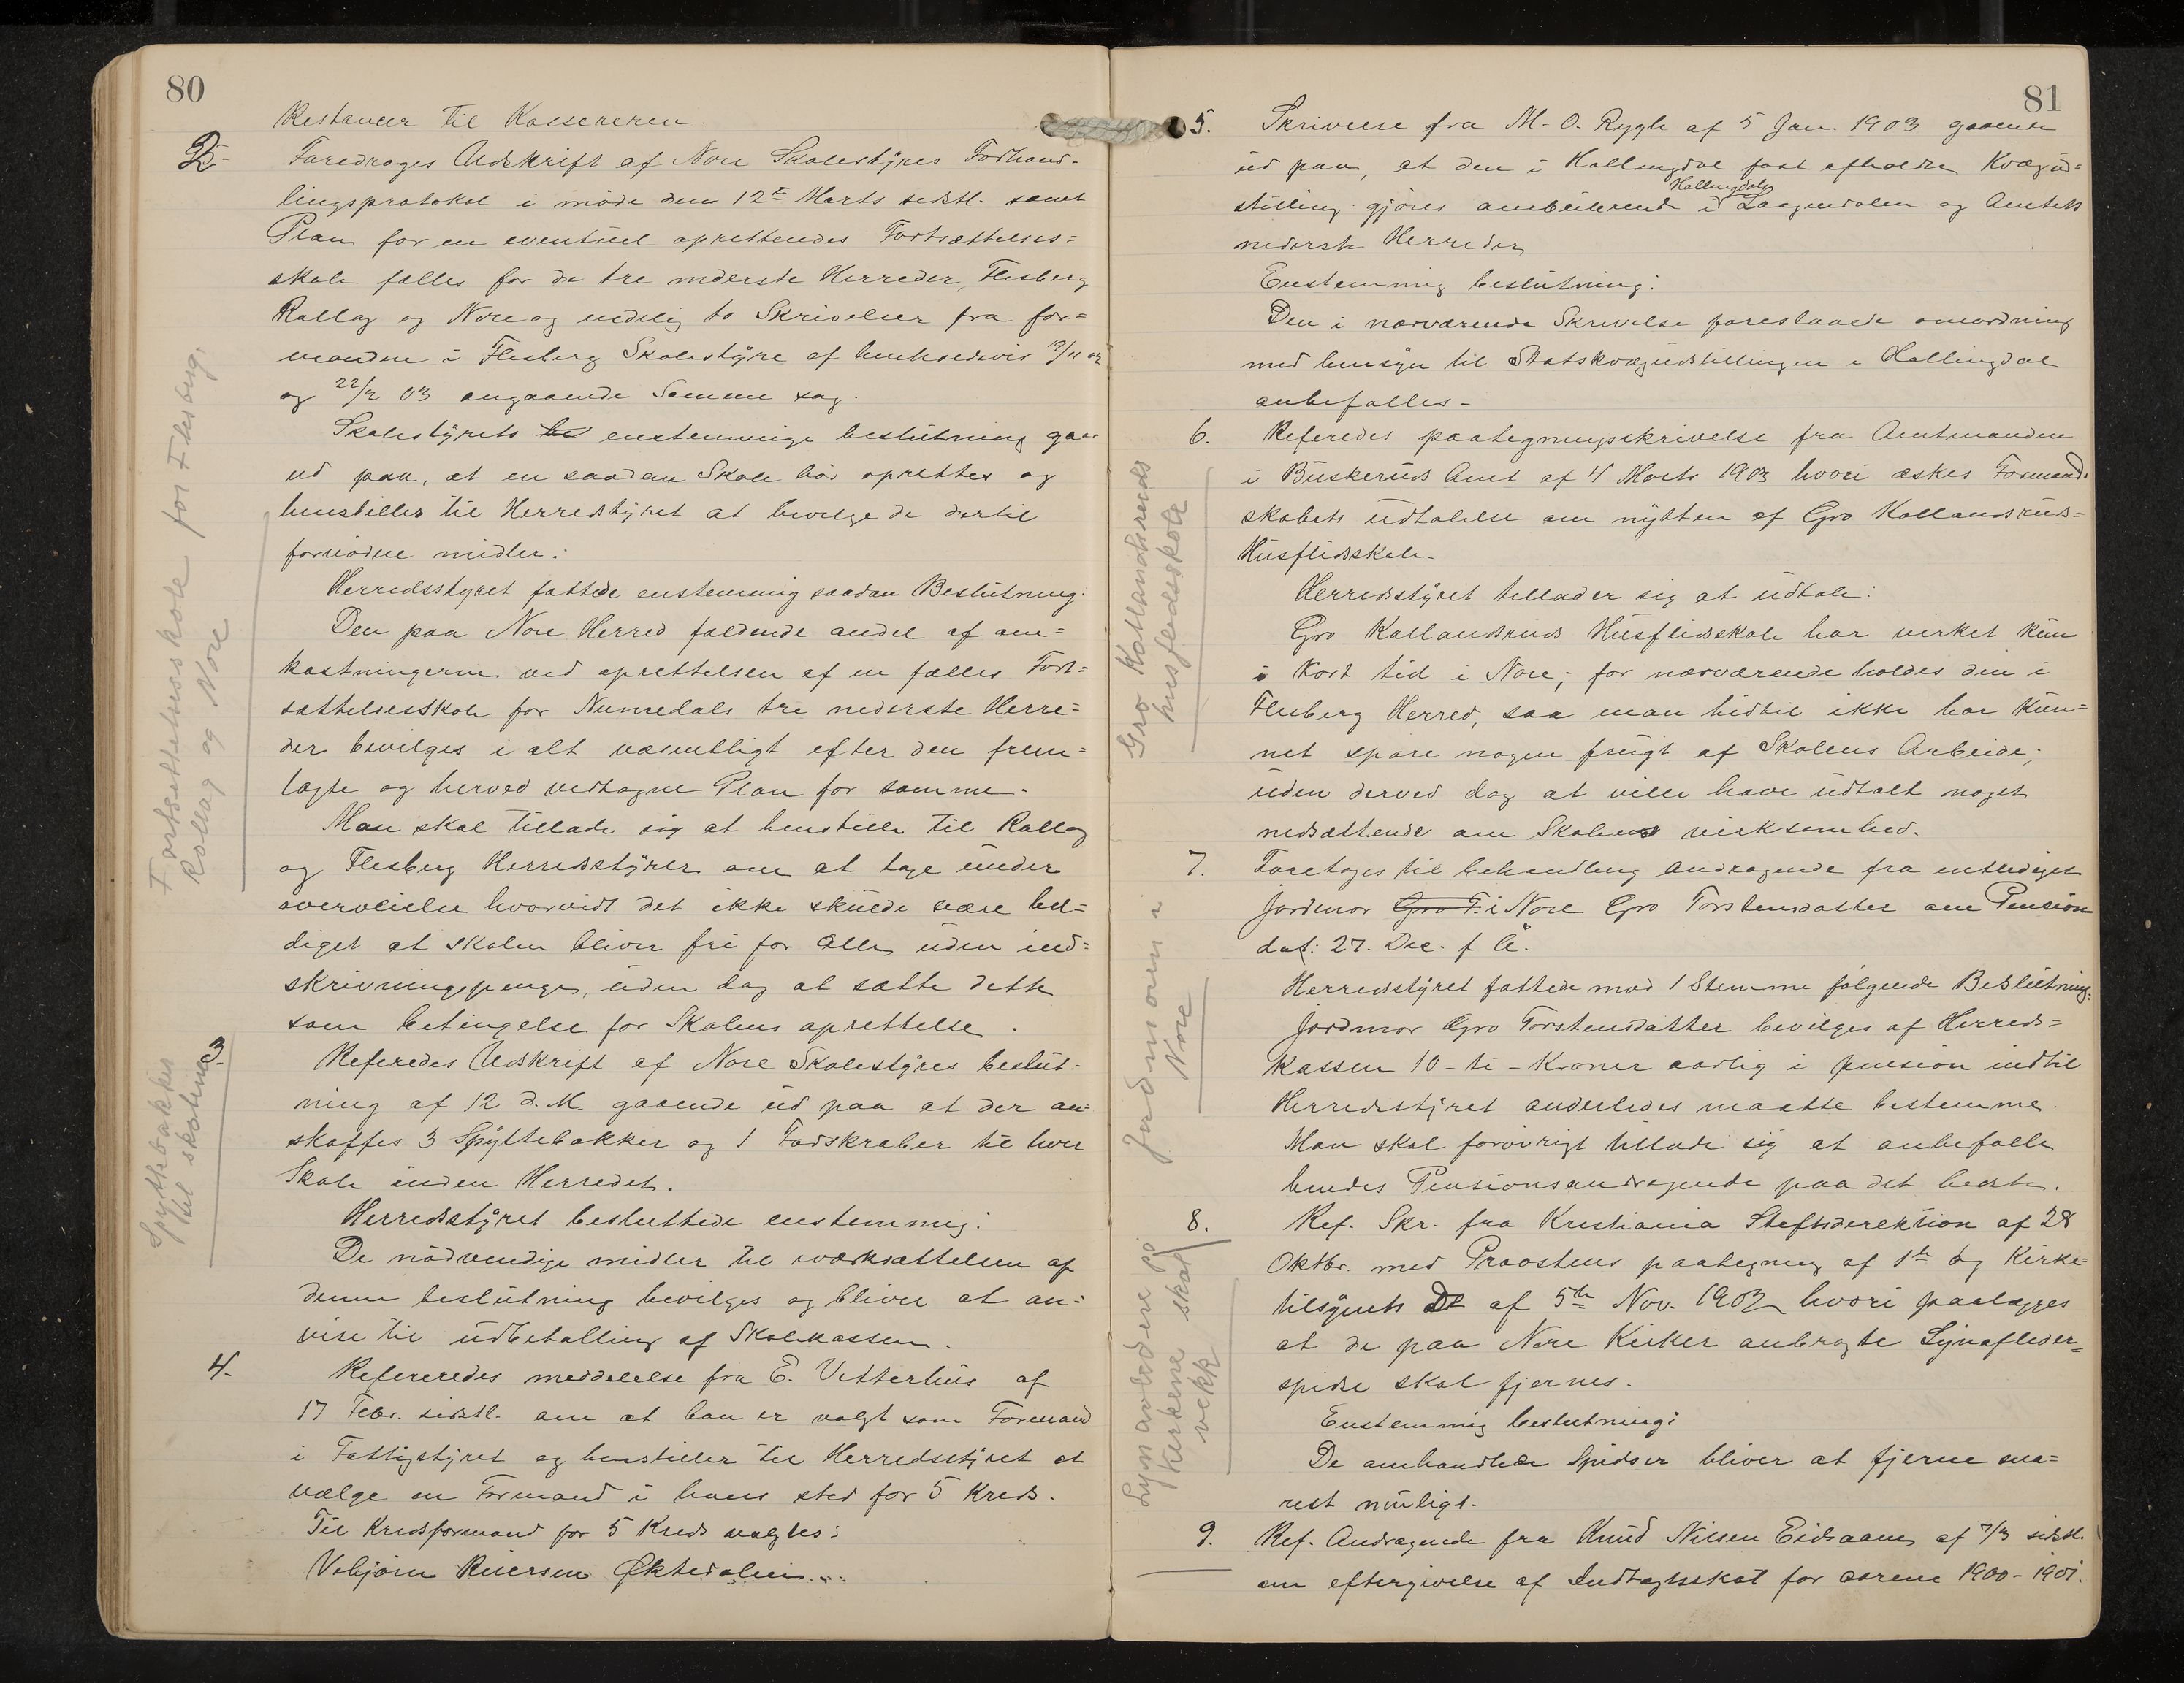 80
Restancer til Kassereren.
2.
Foredroges Udskrift af Nore Skolestyres Forhand-
lingsprotokol i møde den 12te Marts sidstl. samt
Plan for en eventuel oprettendes Fortsættelses=
skole fælles for de tre nderste Herreder, Flesberg
Rollag og Nore og endelig to Skrivelser fra for=
manden i Flesberg Skolestyre af henholdsvis
og 22/2 03 angaaende Samme sag.
Skolestyrets be enstemmige beslutning gaar
ud paa, at en saadan Skole bør oprettes og
henstiller til Herredstyret at bevilge de dertil
fornødne midler.
Herredsstyret fattede enstemmig saadan Beslutning:
Den paa Nore Herred faldende andel af om=
kostningerne ved oprettelsen af en fælles Fort=
sættelsesskole for Numedals tre nederste Herre=
der bevilges i alt væsentligt efter den frem=
lagte og herved vedtagne Plan for samme.
Man skal tillade sig at henstille til Rollag
og Flesberg Herredsstyrer om at tage under
overveielse hvorvidt det ikke skulde være hel=
diget at skolen bliver fri for alle uden ind=
skrivningspenge, uden dog at sætte dette
som betingelse for Skolens oprettelse.
3.
Referedes Udskrift af Nore Skolestyres beslut=
ning af 12 d. M. gaaende ud paa at der an=
skaffes 3 Spyttebakker og 1 Fodskraber til hver
Skole inden Herredet.
Herredsstyret besluttede enstemmig:
De nødvendige midler til iværksættelsen af
denne beslutning bevilges og bliver at an=
vise til udbetalling af Skolekassen.
4.
Refereredes meddelelse fra E. Vetterhus af
17 Febr. sidstl. om at han er valgt som Formand
i Fattigstyret og henstiller til Herredsstyret at
vælge en Formand i hans sted for 5 Kreds.
Til Kredsformand for 5 Kreds valgtes:
Vebjørn Reiersen Øktedalen
Fortsettelsesskole for Flesberg,
Rollag og Nore
Spyttebakker
til skolene
81
5. Skrivelse fra M. O. Rygh af 5 Jan. 1903 gaaende
ud paa, at den i Hallingdal fast afholdte Kvægud=
stilling gjøres ambulerende i Hallingdals Laagendalen og Amtets
nederste Herreder
Enstemmig beslutning:
Den i nærværende Skrivelse foreslaaede omordning
med hensyn til Statskvægudstillingen i Hallingdal
anbefalles.
6. Referedes paategningsskrivelse fra Amtmanden
i Buskeruds Amt af 4 Marts 1903 hvori æskes Formand-
skabets udtalelse om nytten af Gro Kollandsruds=
Husflidsskole.
Herredsstyret tillader sig at udtale:
Gro Kallandsruds Husflidsskole har virket kun
i kort tid i Nore; for nærværende holdes den i
Flesberg Herred, saa man hidtil ikke har kun=
net spore nogen frugt af Skolens Arbeide;
uden derved dog at ville have udtalt noget
nedsættende om Skolens virksomhed.
7. Foretoges til behandling Andragende fra entlediget
Jordmor Gro T. i Nore Gro Torstensdatter om Pension
dat: 27. Dec. f Å.
Herredsstyret fattede mod 1 Stemme følgende Beslutning:
Jordmor Gro Torstensdatter bevilges af Herreds=
kassen 10 - ti - Kroner aarlig i pension indtil
Herredsstyret anderledes maatte bestemme.
Man skal forøvrigt tillade sig at anbefalle
hendes Pensionsandragende paa det bedste.
8. Ref. Skr. fra Kristiania Stiftsdirektion af 28
Oktbr. med Proostens paategning af 1ste og Kirke=
tilsynets Do af 5te Nov. 1902 hvori paalægges
at de paa Nore Kirker anbragte Lynafleder=
spidse skal fjernes.
Enstemmig beslutning:
De omhandlede Spidser bliver at fjerne sna=
rest muligt.
9. Ref. Andragende fra Knud Nilsen Eidsaaen af 7/3 sidstl.
om eftergivelse af Indtagtsskat for aarene 1900 - 1901.
Gro Kollandsruds
husflidsskole
Jordmoren i
Nore
Lynavlederne på
kirkene skal
vekk